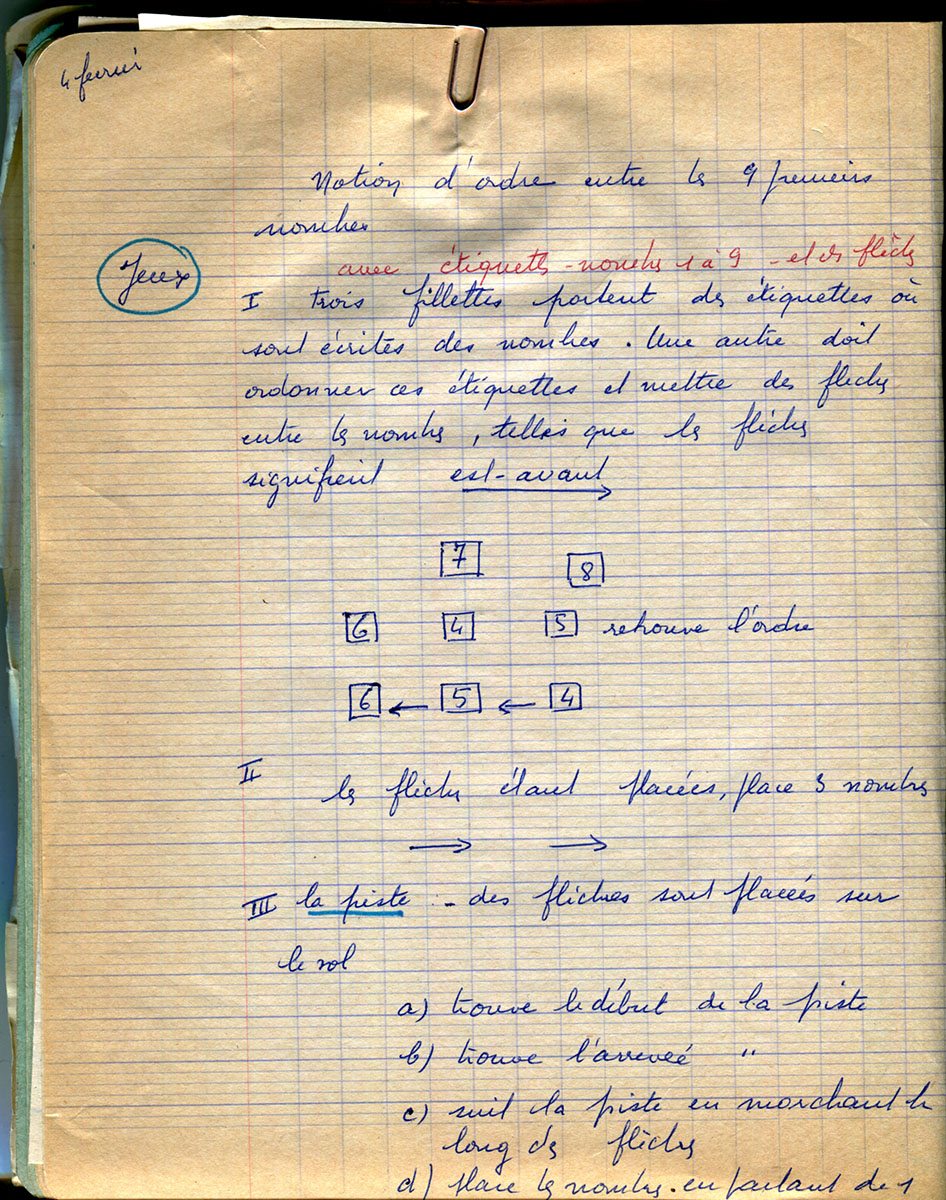 4 fevrier
Notion d'ordre entre les 9 premiers
nombres
avec étiquettes - nombres 1 à 9 - et des flèches
Jeux
I trois fillettes portent des étiquettes où
sont écrites des nombres. Une autre doit
ordonner ces étiquettes et mettre des flèches
entre les nombres, telles que les flèches
signifient est-avant
7 8
6 4 5 retrouve l'ordre
6 ← 5 ← 4
II les flèches étant placées, place 3 nombres
→ →
III la piste :- des flèches sont placées sur
le sol
a) trouve le début de la piste
b) trouve l'arrivée "
c) suit la piste en marchant le
long des flèches
d) place les nombres en partant de 1